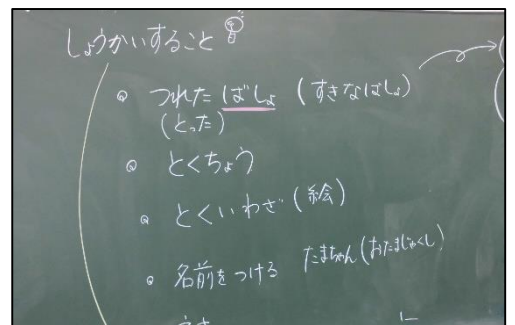 しょうかいすること
つれたばしょ(すきなばしょ)
(とった)
とくちょう
とくいわざ(絵)
名前をつける たまちゃん(おたまじゃくし)